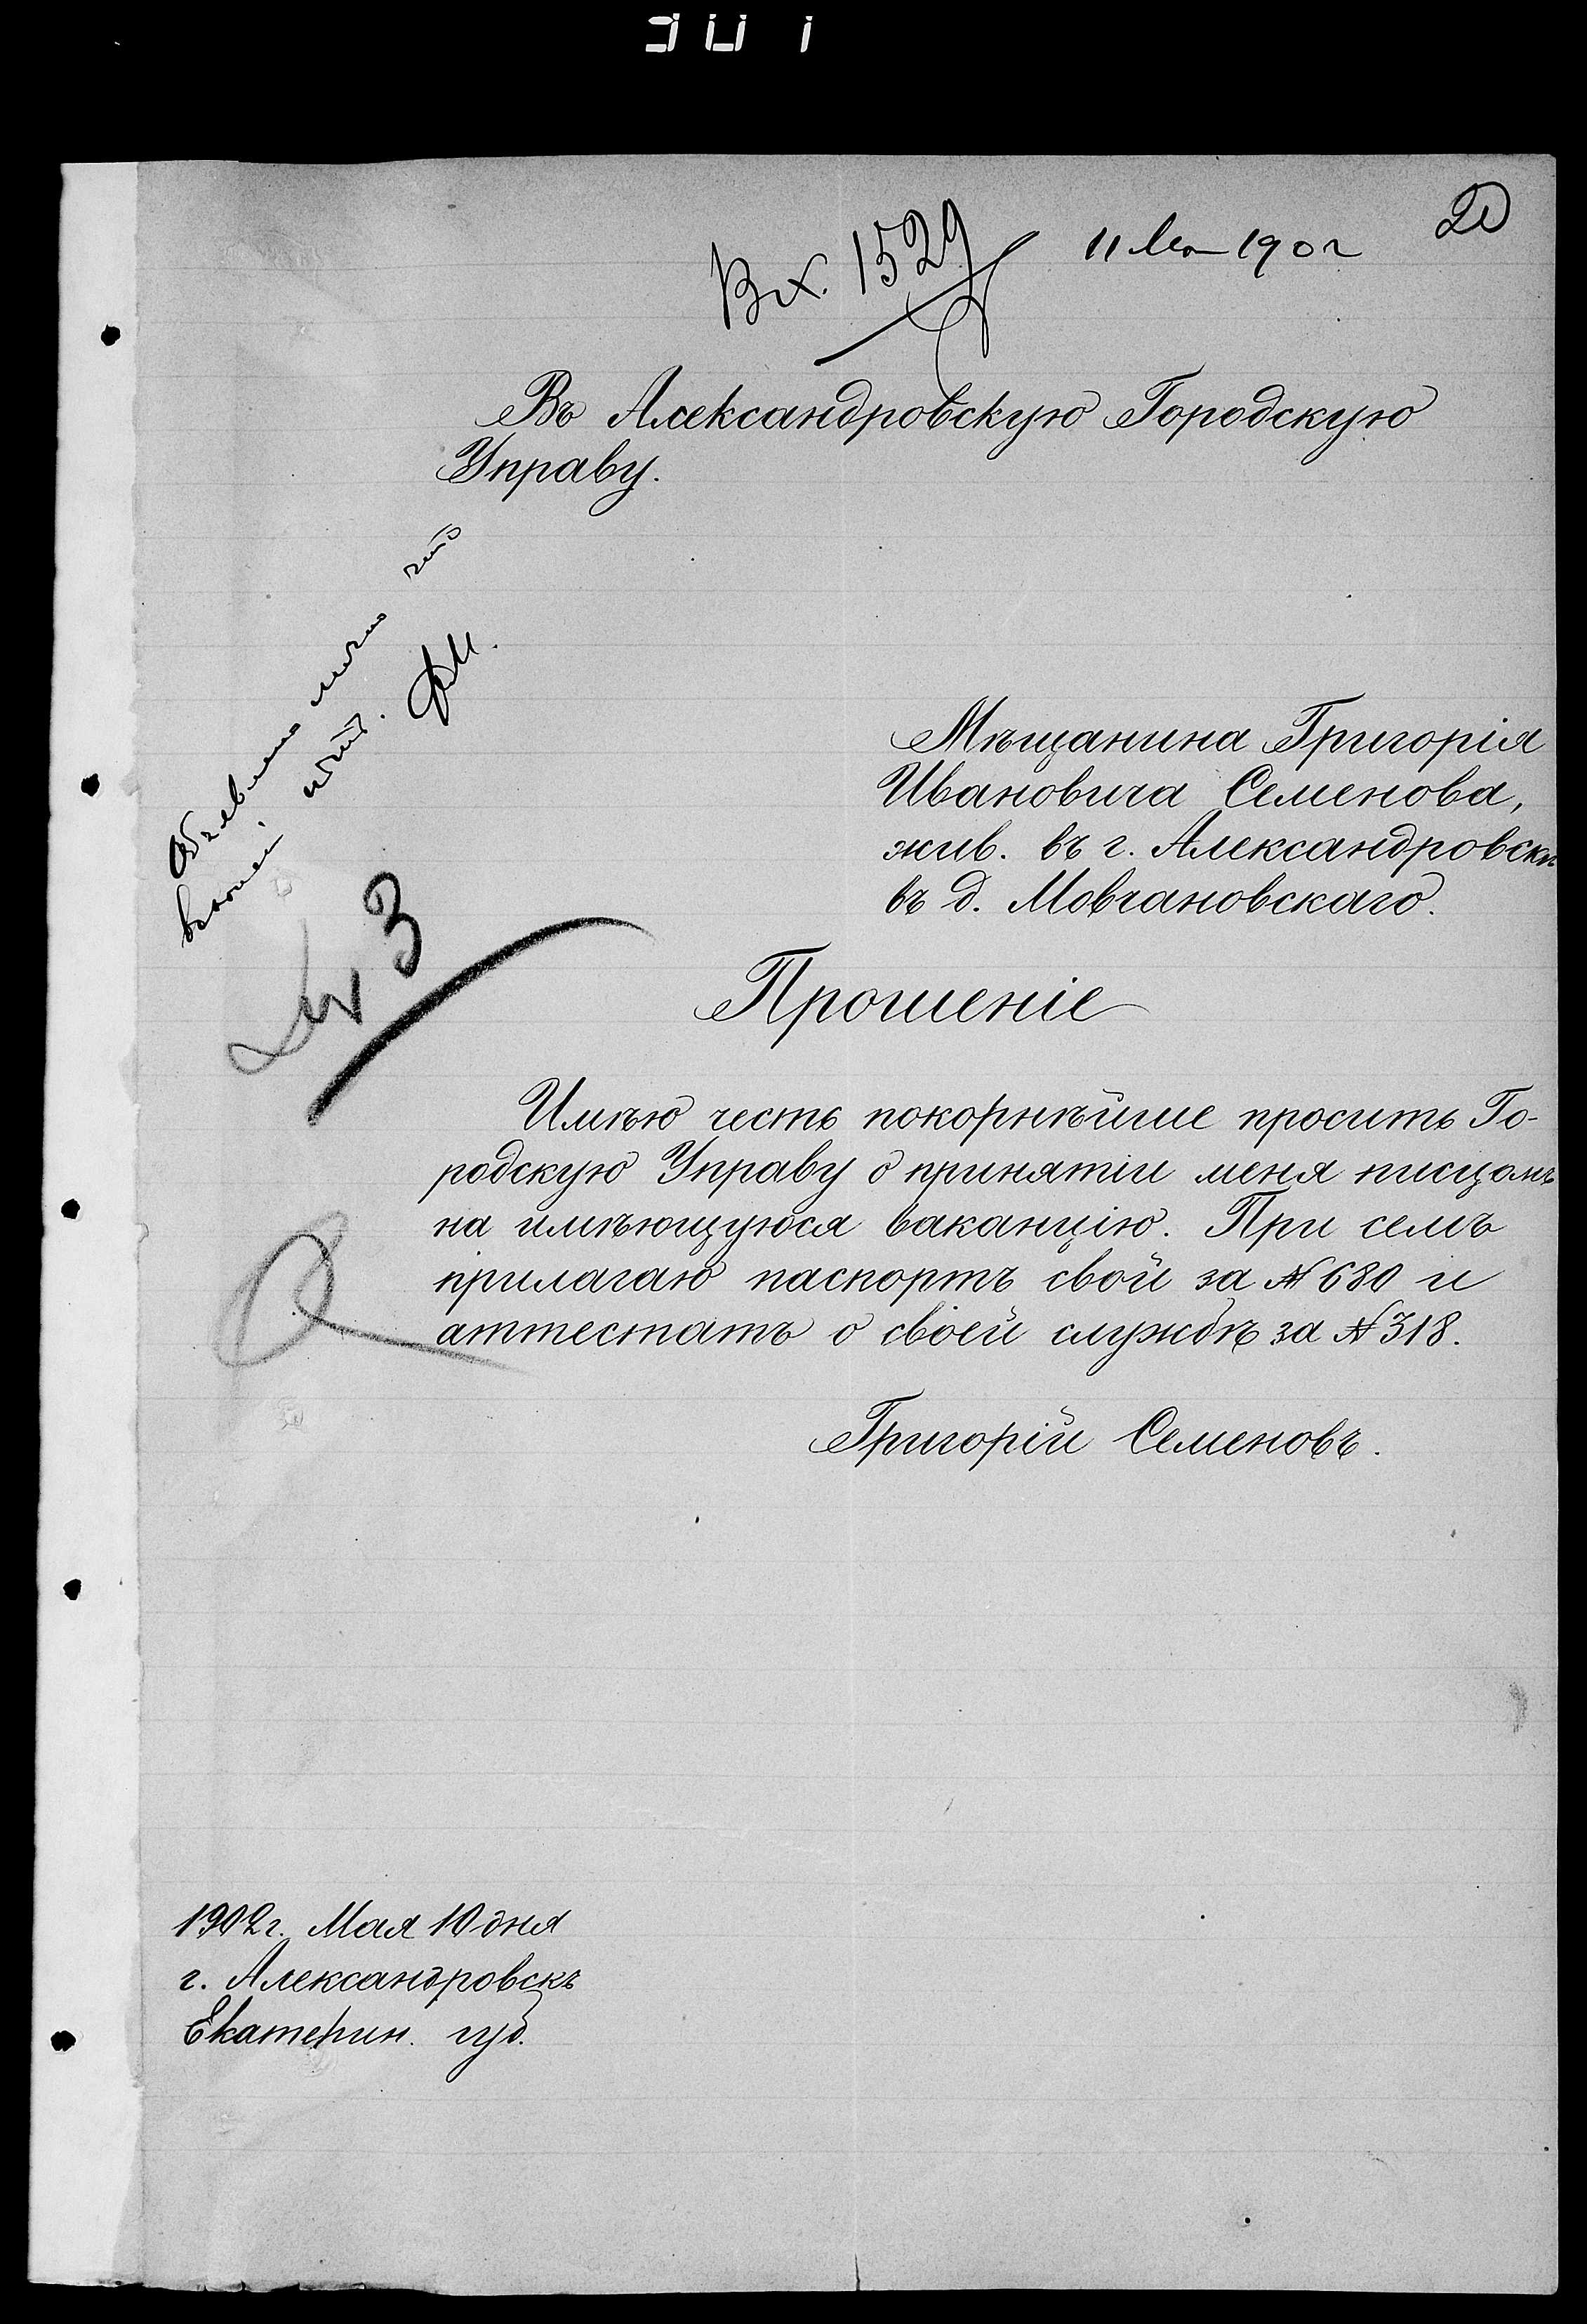 Вх. 1529
11 Мая 1902
Въ Александровскую Городскую
Управу.
Объявлено лично что
вакансіи нѣтъ.
Мѣщанина Григорія
Ивановича Семенова,
жив. въ г. Александровскѣ
въ д. Мовчановскаго.
3
Прошеніе
Имѣю честь покорнѣйше просить Го-
родскую Управу о принятіи меня писцомъ
на имѣющуюся ваканцію. При семъ
прилагаю паспортъ свой за № 680 и
аттестатъ о своей службѣ за № 318.
Григорій Семеновъ.
1902 г. Мая 10 дня
г. Александровскъ
Екатерин. губ.